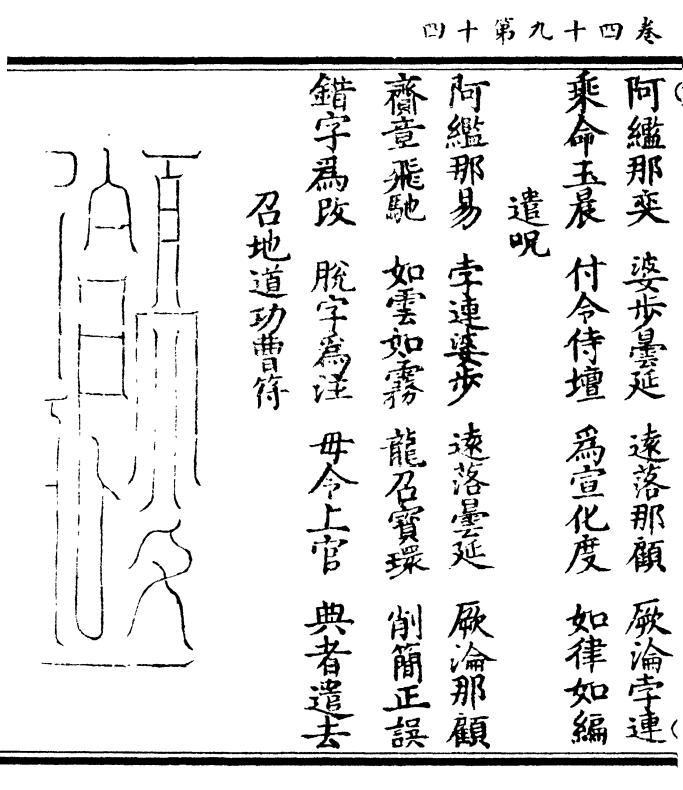 卷四十九第十四
阿繿那奕　婆步曇延　遠落那顧　厥淪孛連
乘命玉晨　付令侍壇　為宣化度　如律如編
遣呪
阿繿那易　孛連婆步　遠落曇延　厥淪那顧
齎章飛馳　如雲如霧　龍召寶環　削簡正誤
錯字爲改　脫字爲注　毋令上官　典者遣去
召地道功曹符